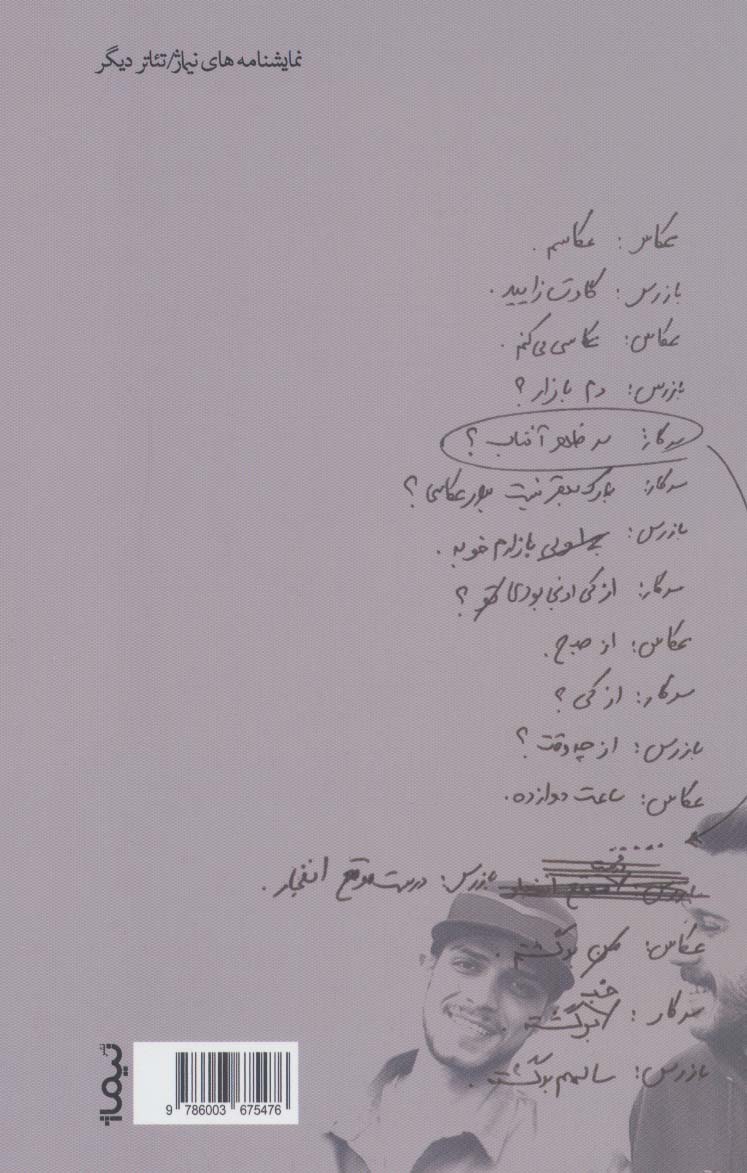 نمایشنامه های نیماژ/تئاتر دیگر
عکاس: عکاسم.
بازرس: گاوت زایید.
عکاس: عکاسی می‌کنم.
بازرس: دم بازار؟
سرکار: سر ظهر آفتاب؟
سرکار: پارک بهتر نیست برای عکاسی؟
بازرس: بازارم خوبه.
سرکار: از کی اونجا بودی؟
عکاس: از صبح.
سرکار: از کی؟
بازرس: از چه وقت؟
عکاس: ساعت دوازده.
.....
بازرس: درست موقع انفجار.
عکاس: من برگشتم.
سرکار: خب برگشته.
بازرس: سالمم برگشته.
نشر نیماژ
9 786003 675476